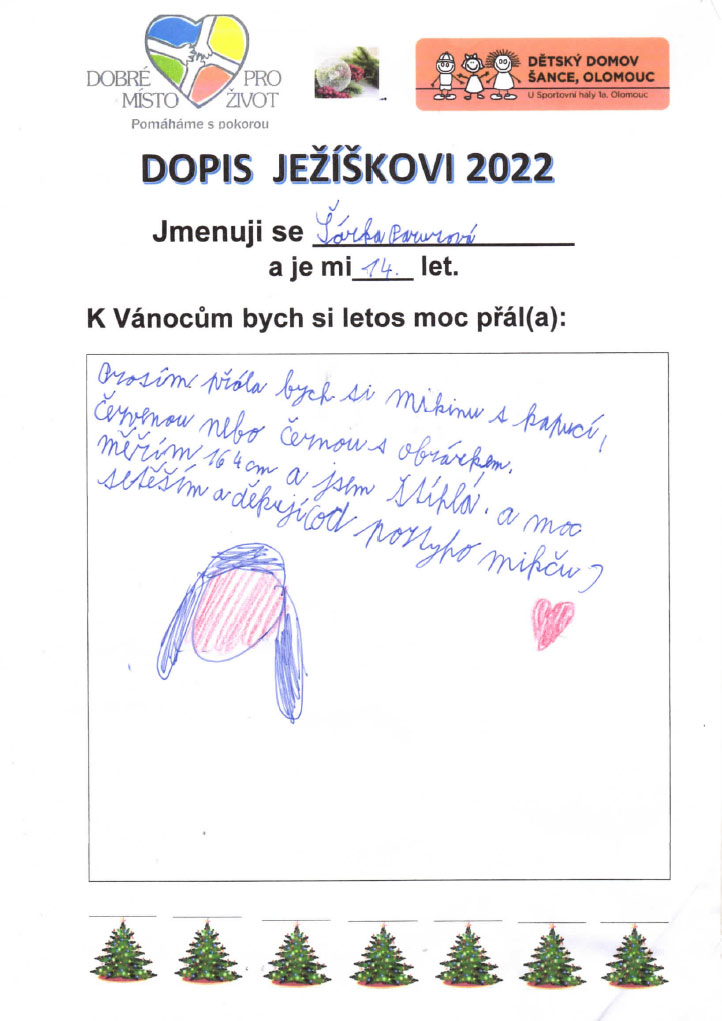 DOBRÉ PRO
MÍSTO ŽIVOT
Pomáháme s pokorou
DĚTSKÝ DOMOV
ŠANCE, OLOMOUC
U Sportovní haly 1a, Olomouc
DOPIS JEŽÍŠKOVI 2022
Jmenuji se Šárka
a je mi 14. let.
K Vánocům bych si letos moc přál(a):
Prosím přála bych si mikinu s kapucí,
Červenou nebo černou s obrázkem.
měřím 164 cm a jsem štíhlá. a moc
setěším a děkuji (od mikču)